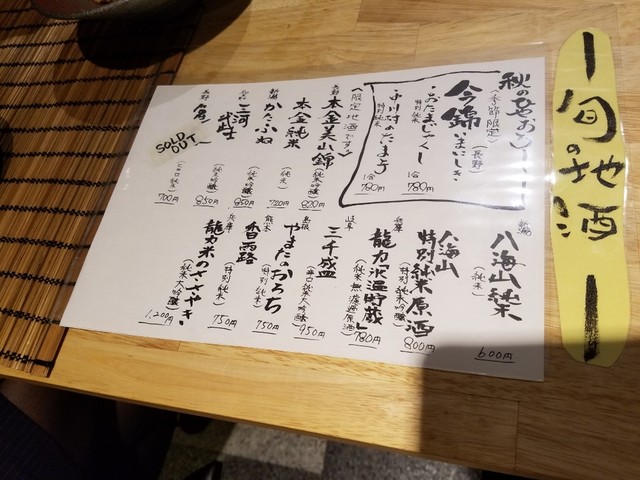 旬の地酒
秋のひやおろし
(季節限定)
今錦 いまにしき (長野)
・おたまじゃくし
特別純米
1合 780円
・中川村のたまさ子
特別純米
1合 780円
(限定地酒です!!)
本金美山錦
(純米吟醸) 820円
長野
本金純米
(純米) 720円
新潟
かたふね
850円
三河武士
(純米吟醸) 850円
長野
SOLD OUT
700円
新潟
八海山純米
(純米)
600円
八海山
特別純米原酒
800円
兵庫
龍力「氷温貯蔵」
780円
岐阜
三千盛
(純米大吟醸)
950円
島根
やまたのおろち
(特別純米)
750円
熊本
香露
(特別純米)
750円
兵庫
龍力米のささやき
(純米大吟醸)
1,200円